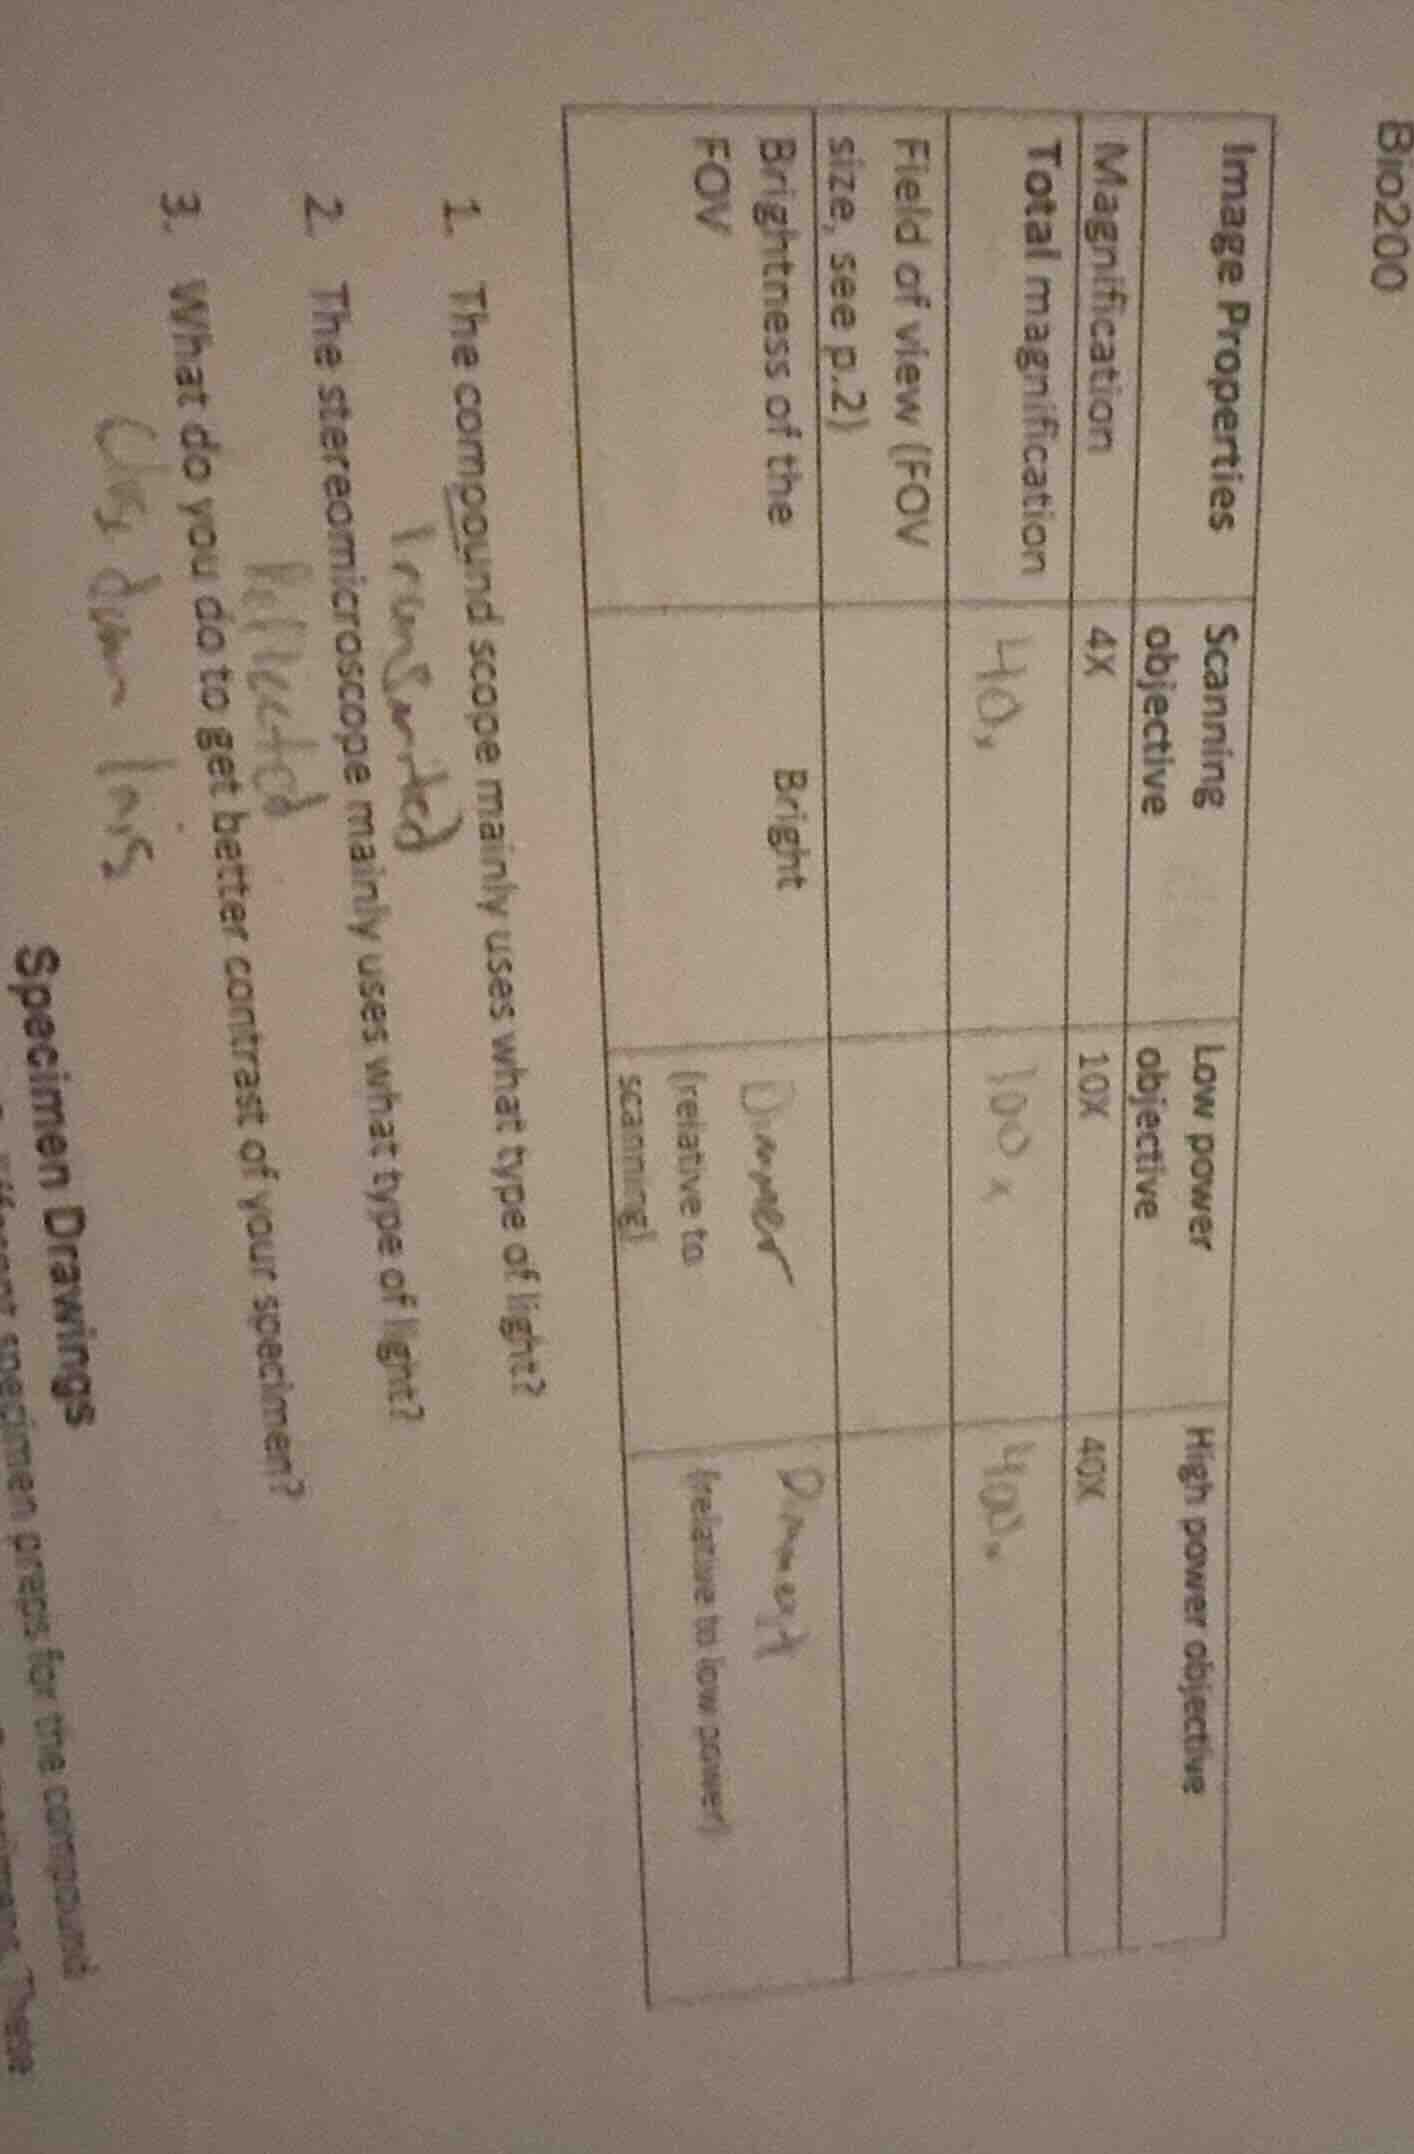 Bio200
Image Properties Scanning objective Low power objective High power objective
Magnification 4X 10X 40X
Total magnification 40x 100x 400x
Field of view (FOV
size, see p.2)
Brightness of the FOV Bright Dimmer (relative to scanning) Dimmest (relative to low power)
1. The compound scope mainly uses what type of light?
2. The stereomicroscope mainly uses what type of light?
Reflected
3. What do you do to get better contrast of your specimen?
Specimen Drawings
specimen preps for the compound
These